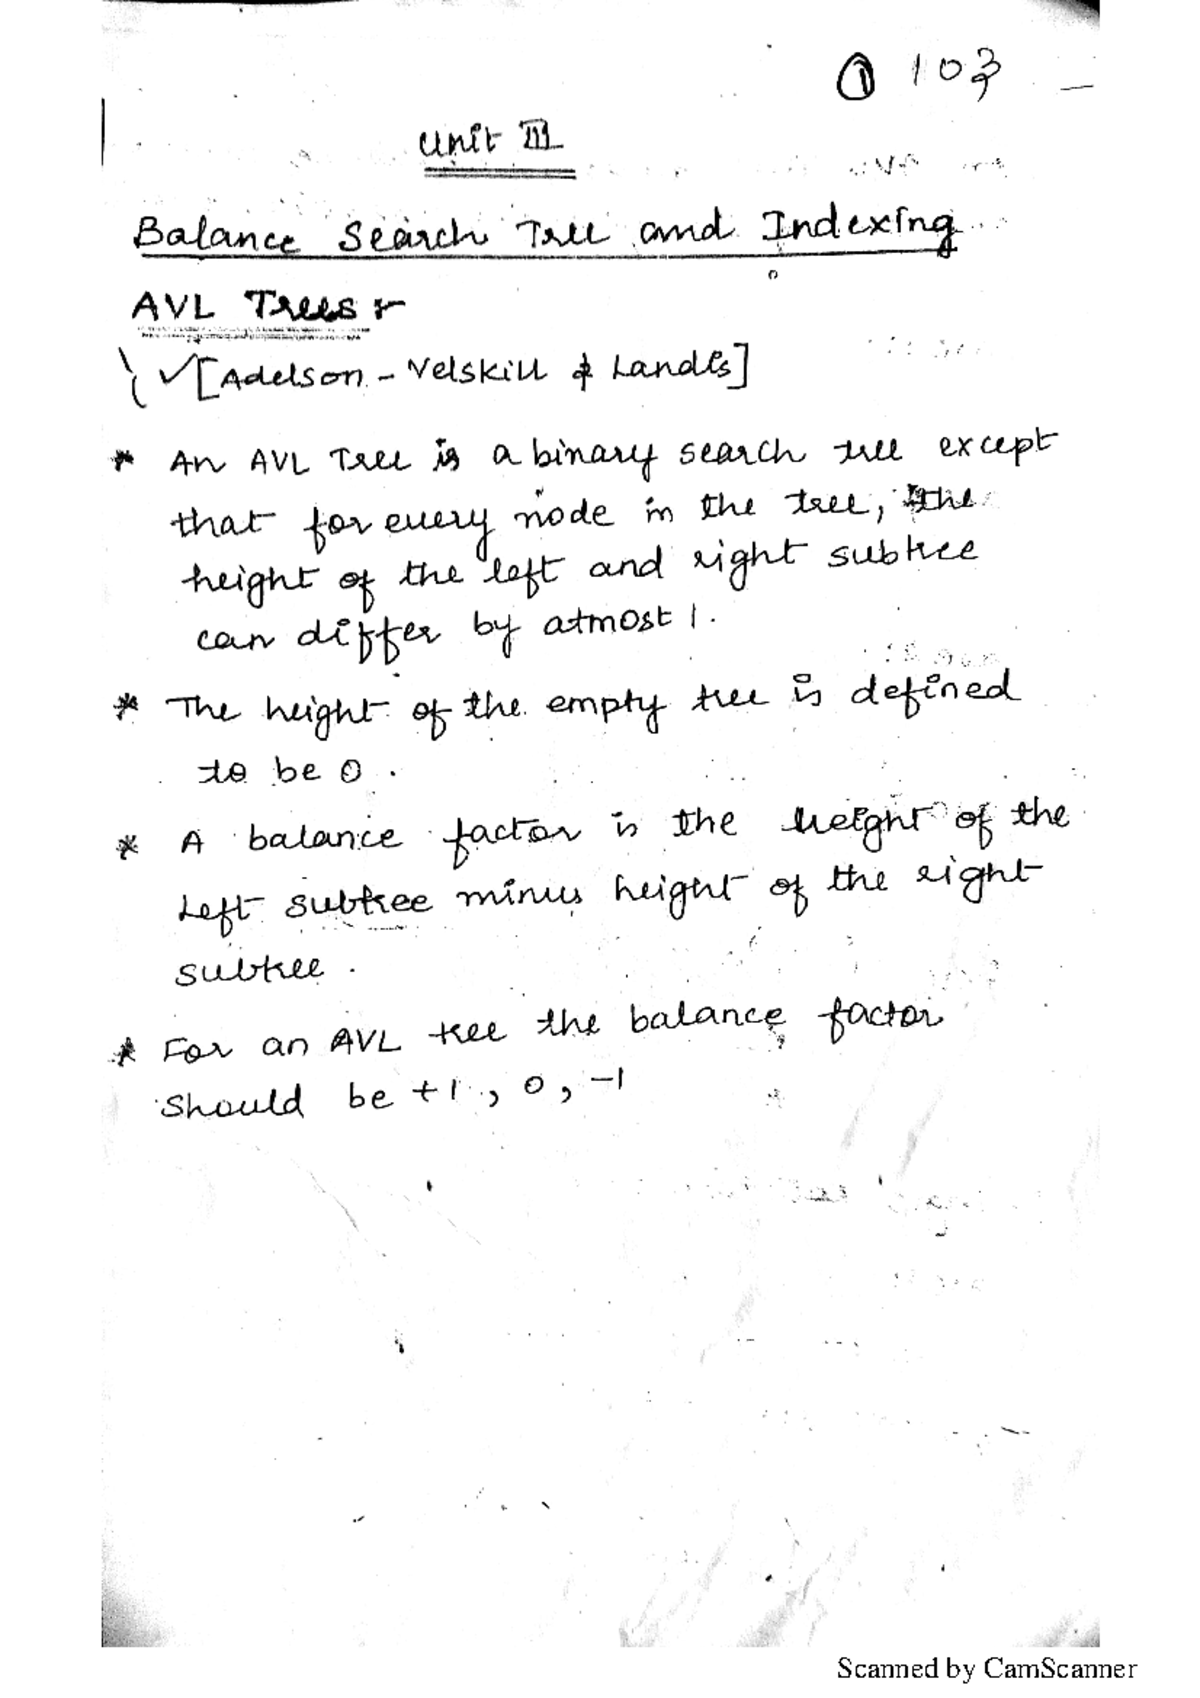 ① 103
Unit III
Balance Search Tree and Indexing
AVL Trees :-
[Adelson - Velskill & Landis]
* An AVL Tree is a binary search tree except
that for every node in the tree, the
height of the left and right subtree
can differ by atmost 1.
* The height of the empty tree is defined
to be 0.
* A balance factor is the height of the
Left subtree minus height of the right
subtree.
* For an AVL tree the balance factor
should be +1, 0, -1
Scanned by CamScanner